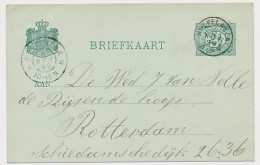 BRIEFKAART
AAN De Wed J van Nelle
de Rijsende hoop
Rotterdam
Schiedamschedijk 26.36